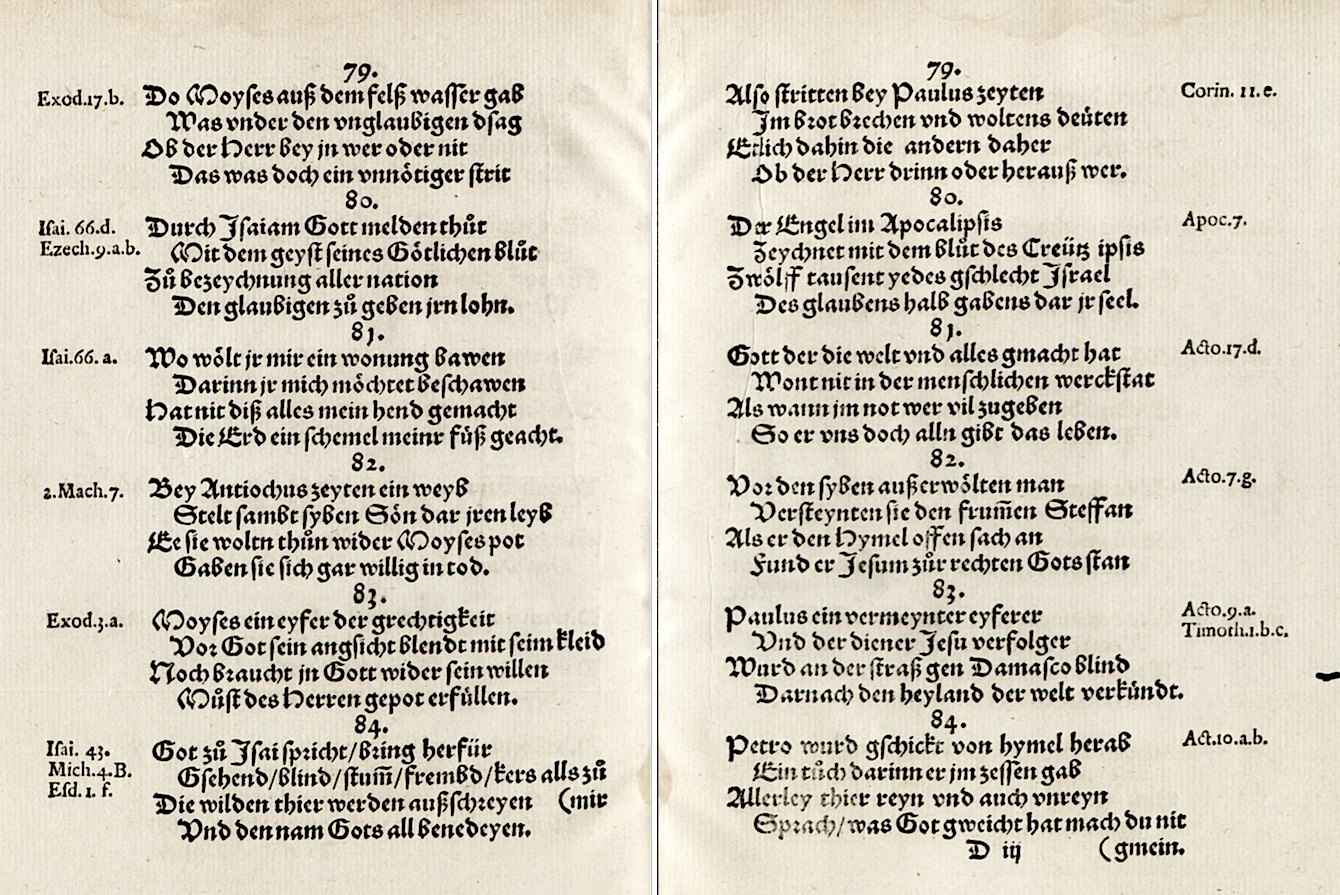 79.
Exod.17.b. Do Moyses auß dem felß wasser gab
Was vnder den vnglaubigen dsag
Ob der Herr bey jn wer oder nit
Das was doch ein vnnötiger strit
80.
Isai. 66.d. Durch Jsaiam Gott melden thůt
Ezech.9.a.b. Mit dem geyst seines Götlichen blůt
Zů bezeychnung aller nation
Den glaubigen zů geben jrn lohn.
81.
Isai.66. a. Wo wölt jr mir ein wonung bawen
Darinn jr mich möchtet beschawen
Hat nit diß alles mein hend gemacht
Die Erd ein schemel meinr füß geacht.
82.
2.Mach.7. Bey Antiochus zeyten ein weyb
Stelt sambt syben Sön dar jren leyb
Ee sie woltn thůn wider Moyses pot
Gaben sie sich gar willig in tod.
83.
Exod.3.a. Moyses ein eyfer der grechtigkeit
Vor Got sein angsicht blendt mit seim kleid
Noch braucht jn Gott wider sein willen
Můst des Herren gepot erfüllen.
84.
Isai. 43. Got zů Jsai spricht/bring herfür
Mich.4.B. Gsehend/blind/stum̄/frembd/kers alls zů
Esd. 1. f. Die wilden thier werden außschreyen (mir
Vnd den nam Gots all benedeyen.
79.
Also stritten bey Paulus zeyten Corin. 11.e.
Jm brot brechen vnd woltens deüten
Etlich dahin die andern daher
Ob der Herr drinn oder herauß wer.
80.
Der Engel im Apocalipsis Apoc.7.
Zeychnet mit dem blůt des Creütz ipsis
Zwölff tausent yedes gschlecht Jsrael
Des glaubens halb gabens dar jr seel.
81.
Gott der die welt vnd alles gmacht hat Acto.17.d.
Wont nit in der menschlichen werckstat
Als wann jm not wer vil zugeben
So er vns doch alln gibt das leben.
82.
Vor den syben außerwölten man Acto.7.g.
Versteynten sie den frum̄en Steffan
Als er den Hymel offen sach an
Fund er Jesum zůr rechten Gots stan
83.
Paulus ein vermeynter eyferer Acto.9.a.
Vnd der diener Jesu verfolger Timoth.1.b.c.
Wurd an der straß gen Damasco blind
Darnach den heyland der welt verkündt.
84.
Petro wurd gschickt von hymel herab Act.10.a.b.
Ein tůch darinn er jm zessen gab
Allerley thier reyn vnd auch vnreyn
Sprach/was Got gweicht hat mach du nit
D iij (gmein.